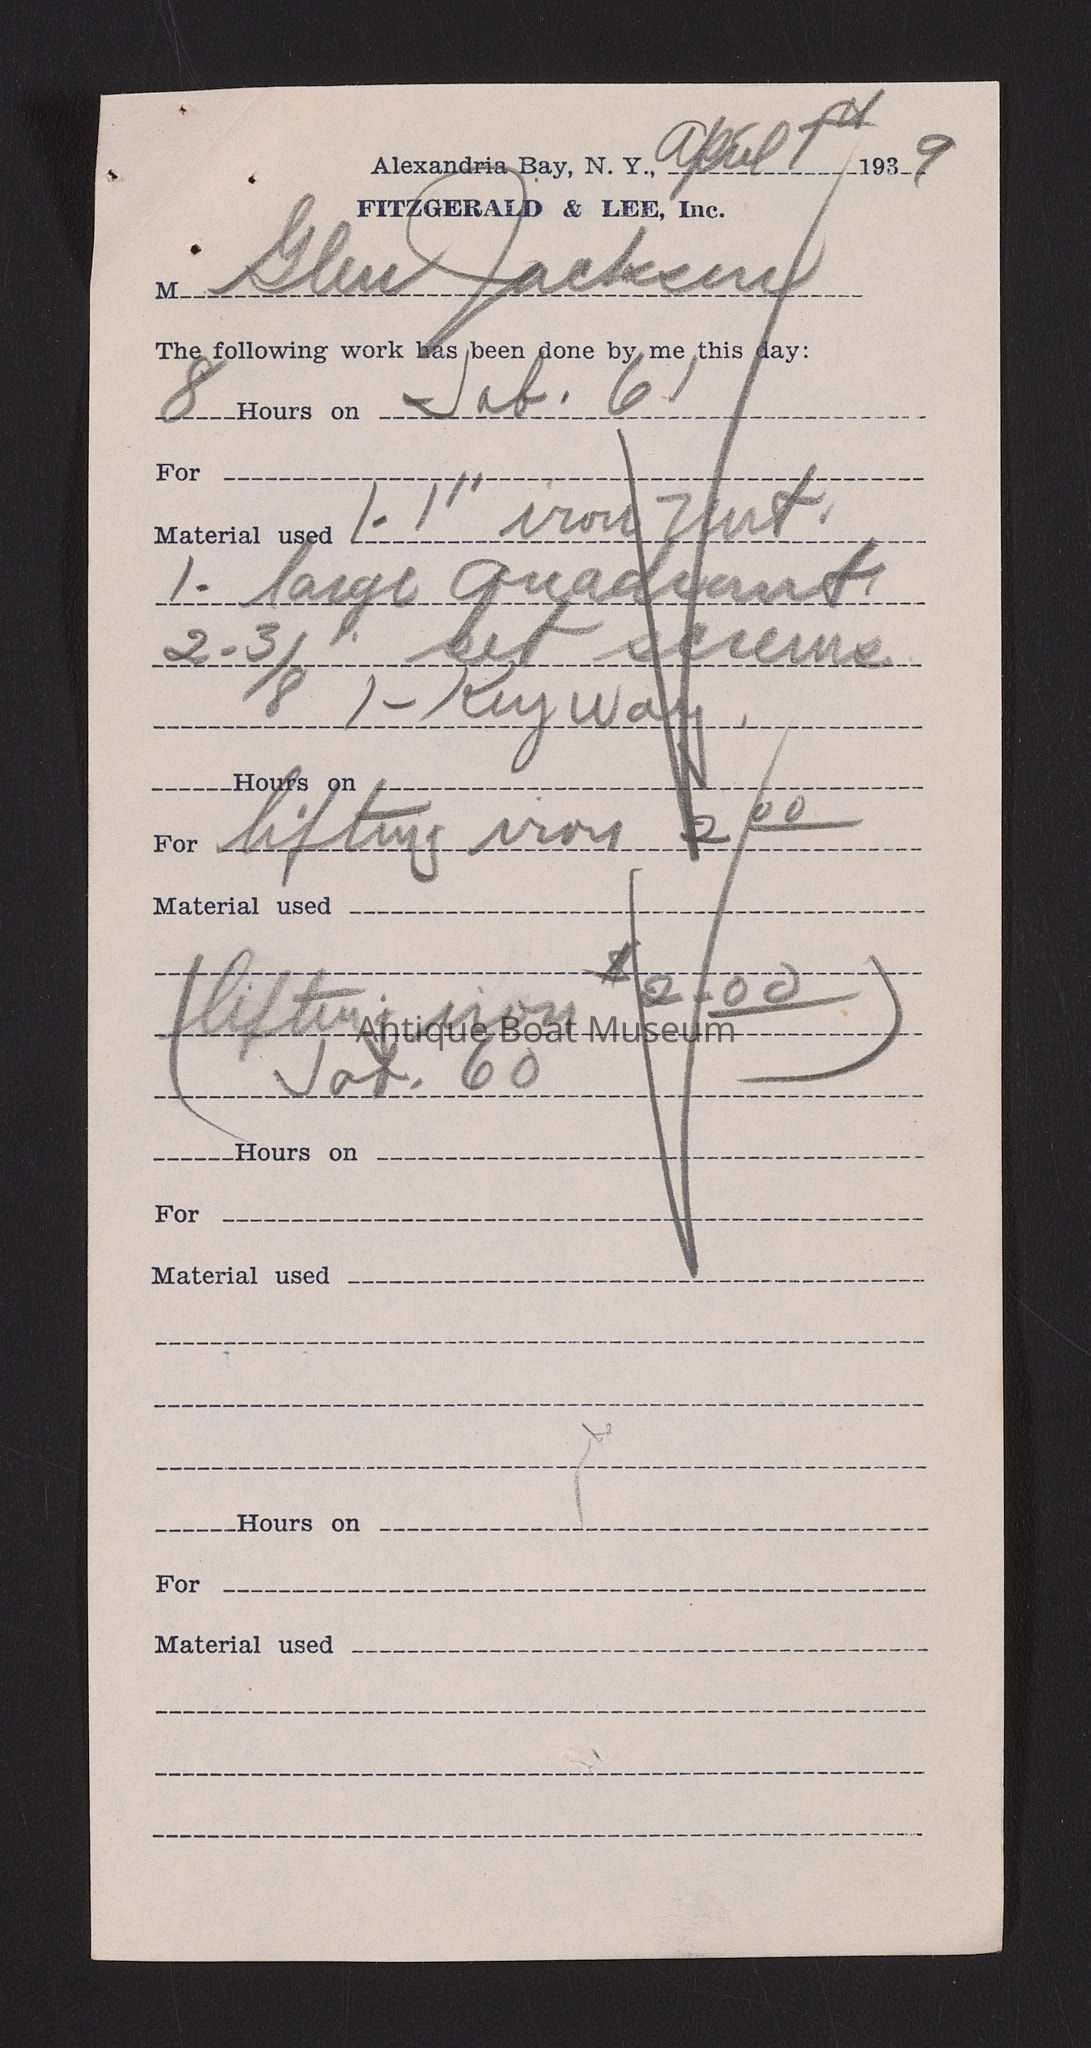 Alexandria Bay, N. Y., April 7th 1939
FITZGERALD & LEE, Inc.
M Glen Jackson
The following work has been done by me this day:
8 Hours on Job. 61
For
Material used 1-1" iron nut.
1- large quadrant.
2-3/8" set screws
1- Key way.
Hours on
For lifting iron 2 00
Material used
(lifting iron $2.00)
Antique Boat Museum
Job. 60
Hours on
For
Material used
Hours on
For
Material used